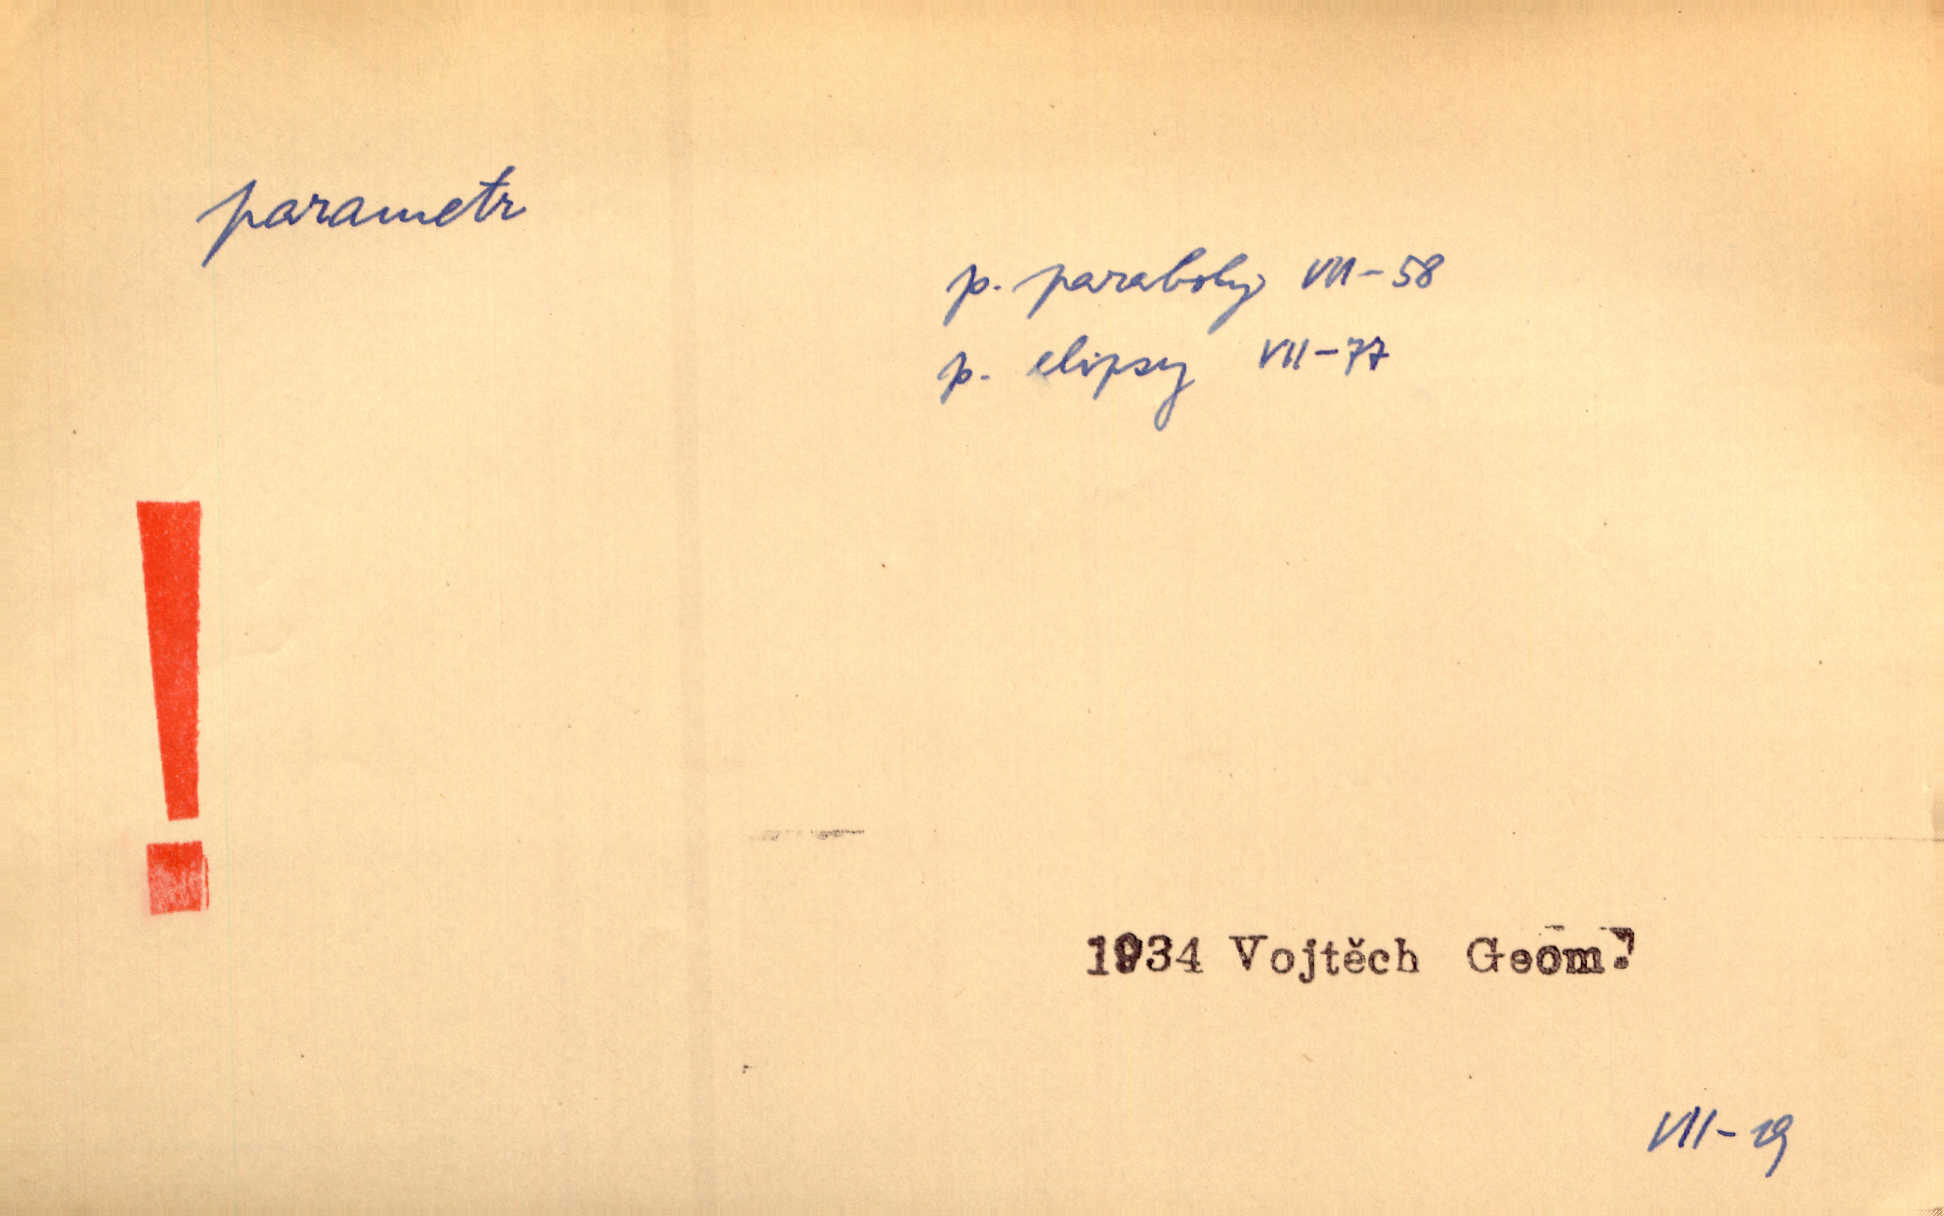 parametr
p. paraboly VII-58
p. elipsy VII-77
!
1934 Vojtěch Geom.
VII-19